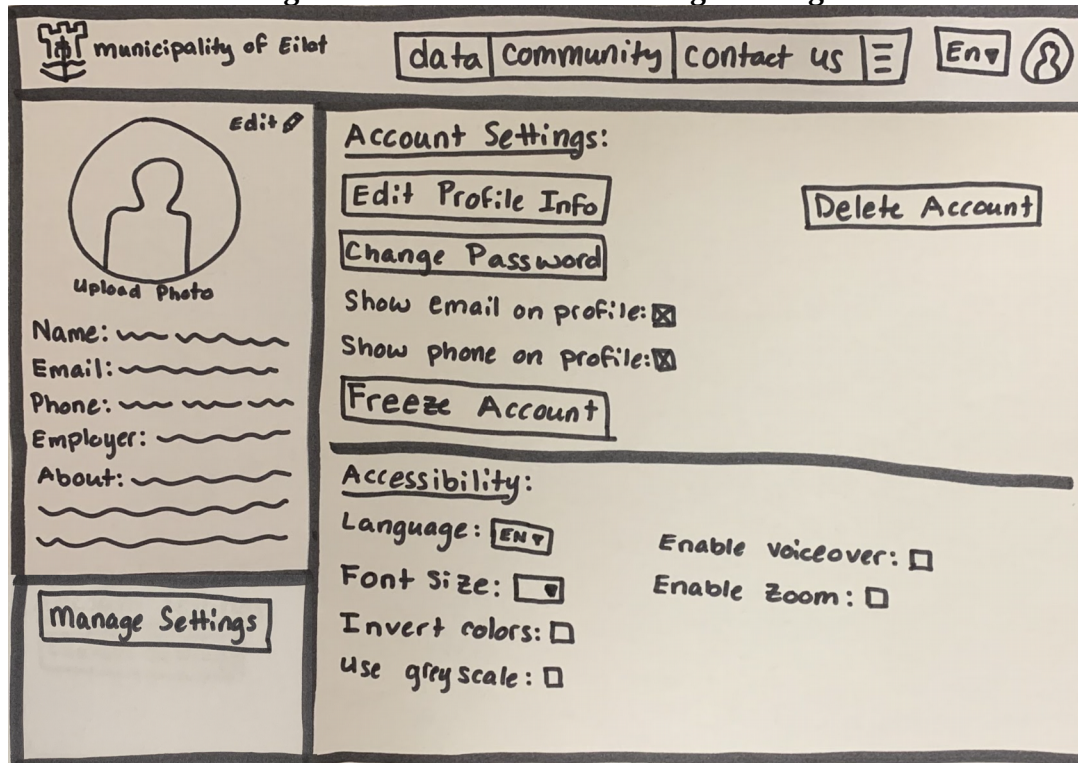 municipality of Eilat
data community contact us
En
Edit
Upload Photo
Name:
Email:
Phone:
Employer:
About:
Manage Settings
Account Settings:
Edit Profile Info
Delete Account
Change Password
Show email on profile:
Show phone on profile:
Freeze Account
Accessibility:
Language: EN
Font Size:
Invert colors:
Use greyscale:
Enable voiceover:
Enable Zoom: